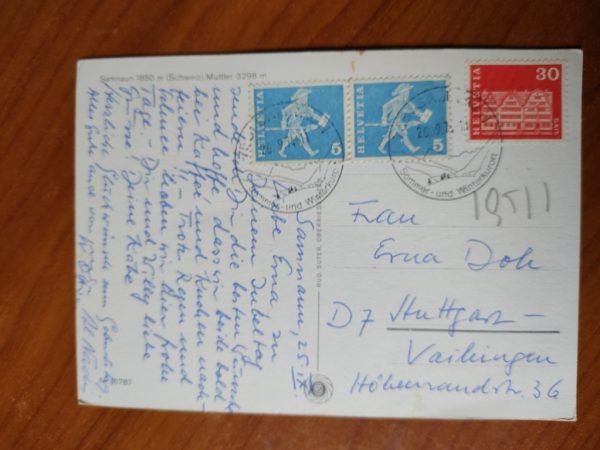 Samnaun 1850 m (Schweiz) Muttler 3298 m
HELVETIA
5
HELVETIA
5
HELVETIA
30
Sommer- und Winterkurort
Sommer- und Winterkurort
Samnaun, 25. IX.
Liebe Erna zu
Deinem Jubeltag
sende ich Dir die besten Wünsche
und hoffe, dass wir beide bald
bei Kaffee und Kuchen nach-
feiern. – Trotz Regen und
haben wir hier frohe
Tage. – Dir und Willy liebe
Grüsse Deine
Herzliche Glückwünsche zum Geburtstag
Alles Gute und
RUD. SUTER, OBERRIEDEN
Frau
Erna Doh
D7 Stuttgart –
Vaihingen
Höhenrandstr. 36